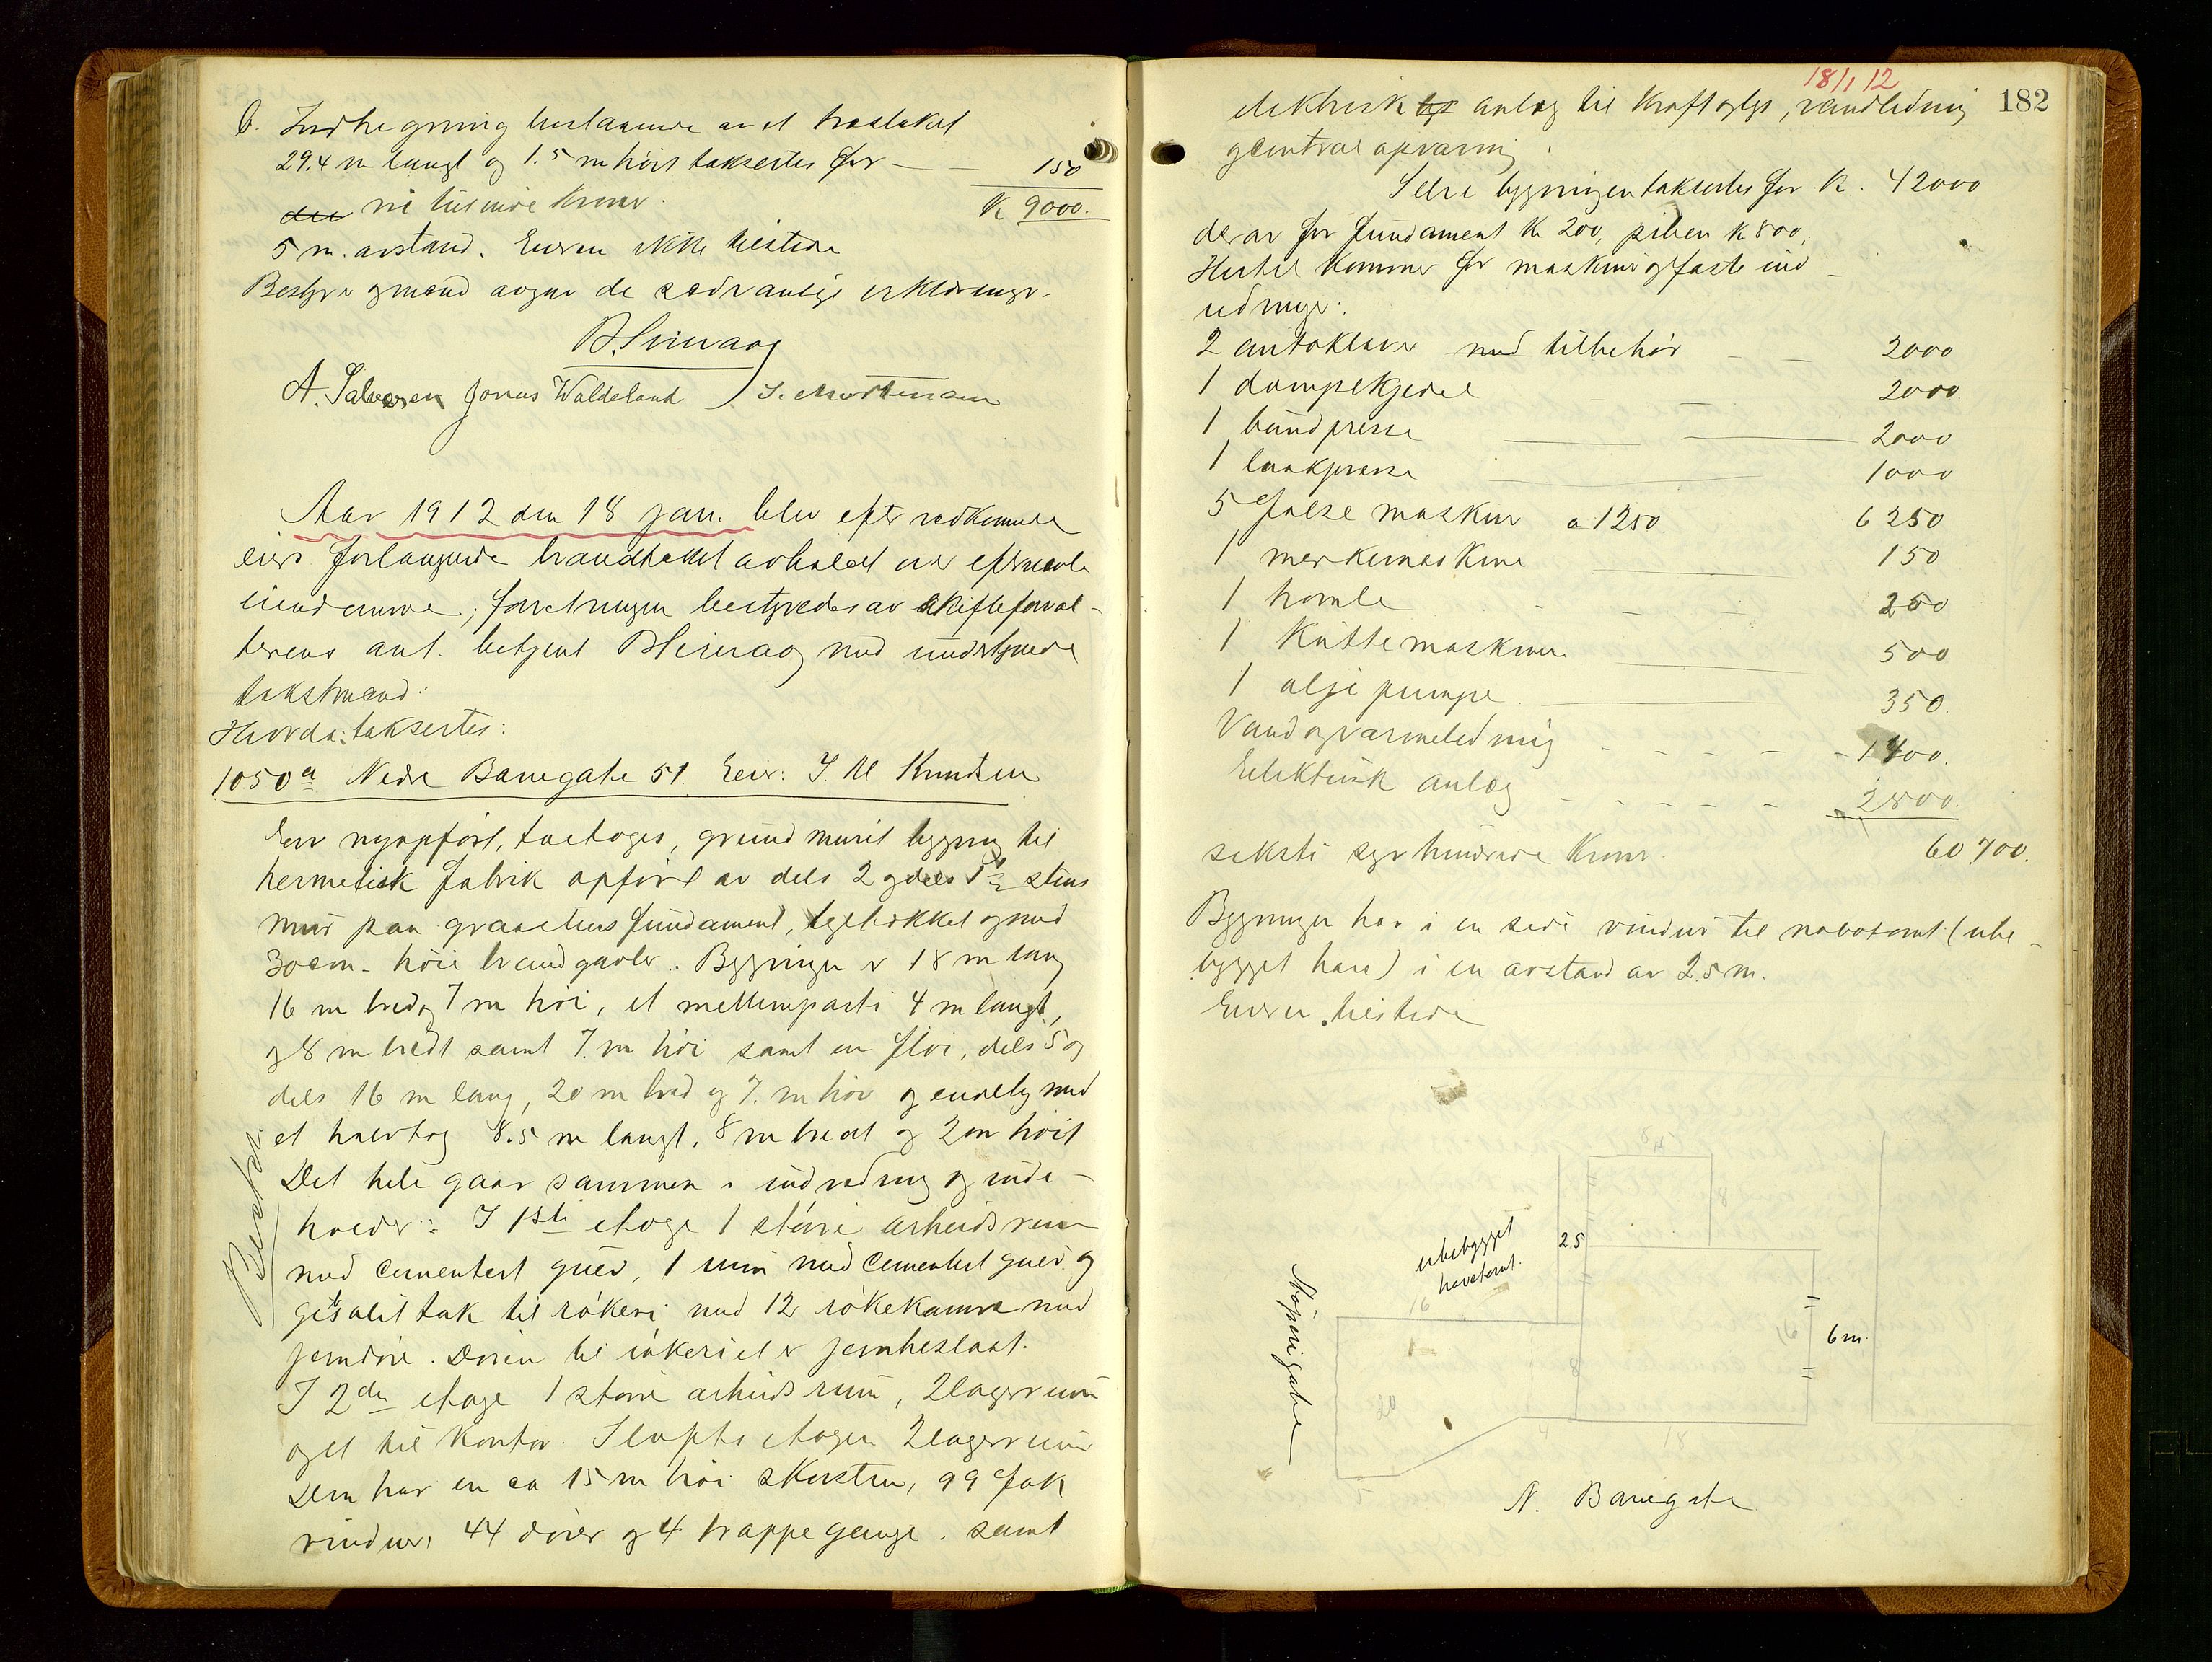 6. Indhegning bestaaende av et træstaket
29.4 m langt og 1.5 m høit taksertes for — 150
ni tusinde Kroner. K 9000.
5 m. avstand. Eieren ikke tilstede
Bestyrer og mænd avgav de sædvanlige erklæringer.
A. Salvesen Jonas Waldeland J. Mortensen
Aar 1912 den 18 jan. blev efter vedkommende
eiers forlangende brandtakst avholdt over efternævnte
eiendomme; forretningen bestyredes av skifteforval-
terens aut. betjent med undertegnede
takstmænd:
Hvorda: taksertes:
1050a Nedre Banegate 51. Eier: J. M Knudsen
En nyopført, toetages, grundmuret bygning til
hermetisk fabrik opført av dels 2 og dels 1½ stens
mur paa graastens fundament, tegltækket og med
30 cm. høie brandgavler. Bygningen er 18 m lang
16 m bred og 7 m høi, et mellemparti 4 m langt,
og 8 m bredt samt 7. m høi samt en fløi, dels 5 og
dels 16 m lang, 20 m bred og 7. m høi og endelig med
et halvtag 8.5 m langt, 8 m bredt og 2 m høit
Det hele gaar sammen i indredning og inde-
holder: I 1ste etage 1 større arbeidsrum
med cementert gulv, 1 rum med cementert gulv og
gitsolit tak til røkeri med 12 røkekamre med
jerndøre. Døren til røkeriet er jernbeslaat.
I 2den etage 1 større arbeidsrum, 2 lagerrum
og et til Kontor. I loftsetagen 2 lagerrum
Den har en ca 15 m høi skorsten, 99 fak
vinduer, 44 dører og 4 trappegange. samt
18/1 12
182
elektrisk anlæg til Kraft og lys, vandledning
og centralopvarmning.
Selve bygningen taksertes for K. 42000
derav for fundament K 200, piben K 800,
Hertil kommer for maskiner og faste ind-
redninger:
2 autoklaver med tilbehør — — 2000
1 dampkjedel — — 2000.
1 bundpresse — — 2000
1 laakpresse — 1000
5 false maskiner a 1250. 6250
1 merkemaskine — 150
1 tromle — 250
1 Kuttemaskine — 500
1 olje pumpe — 350.
Vand og varmeledning - - - - - 1400.
Elektrisk anlæg - - - - - 2800.
seksti syvhundrede Kroner. 60 700.
Bygningen har i en side vinduer til nabotomt (ube-
bygget have) i en avstand av 2.5 m.
Eieren tilstede
8.5
8
2.5
ubebygget
havetomt.
16
16
6 m.
8
20
4
18
5
N. Banegate